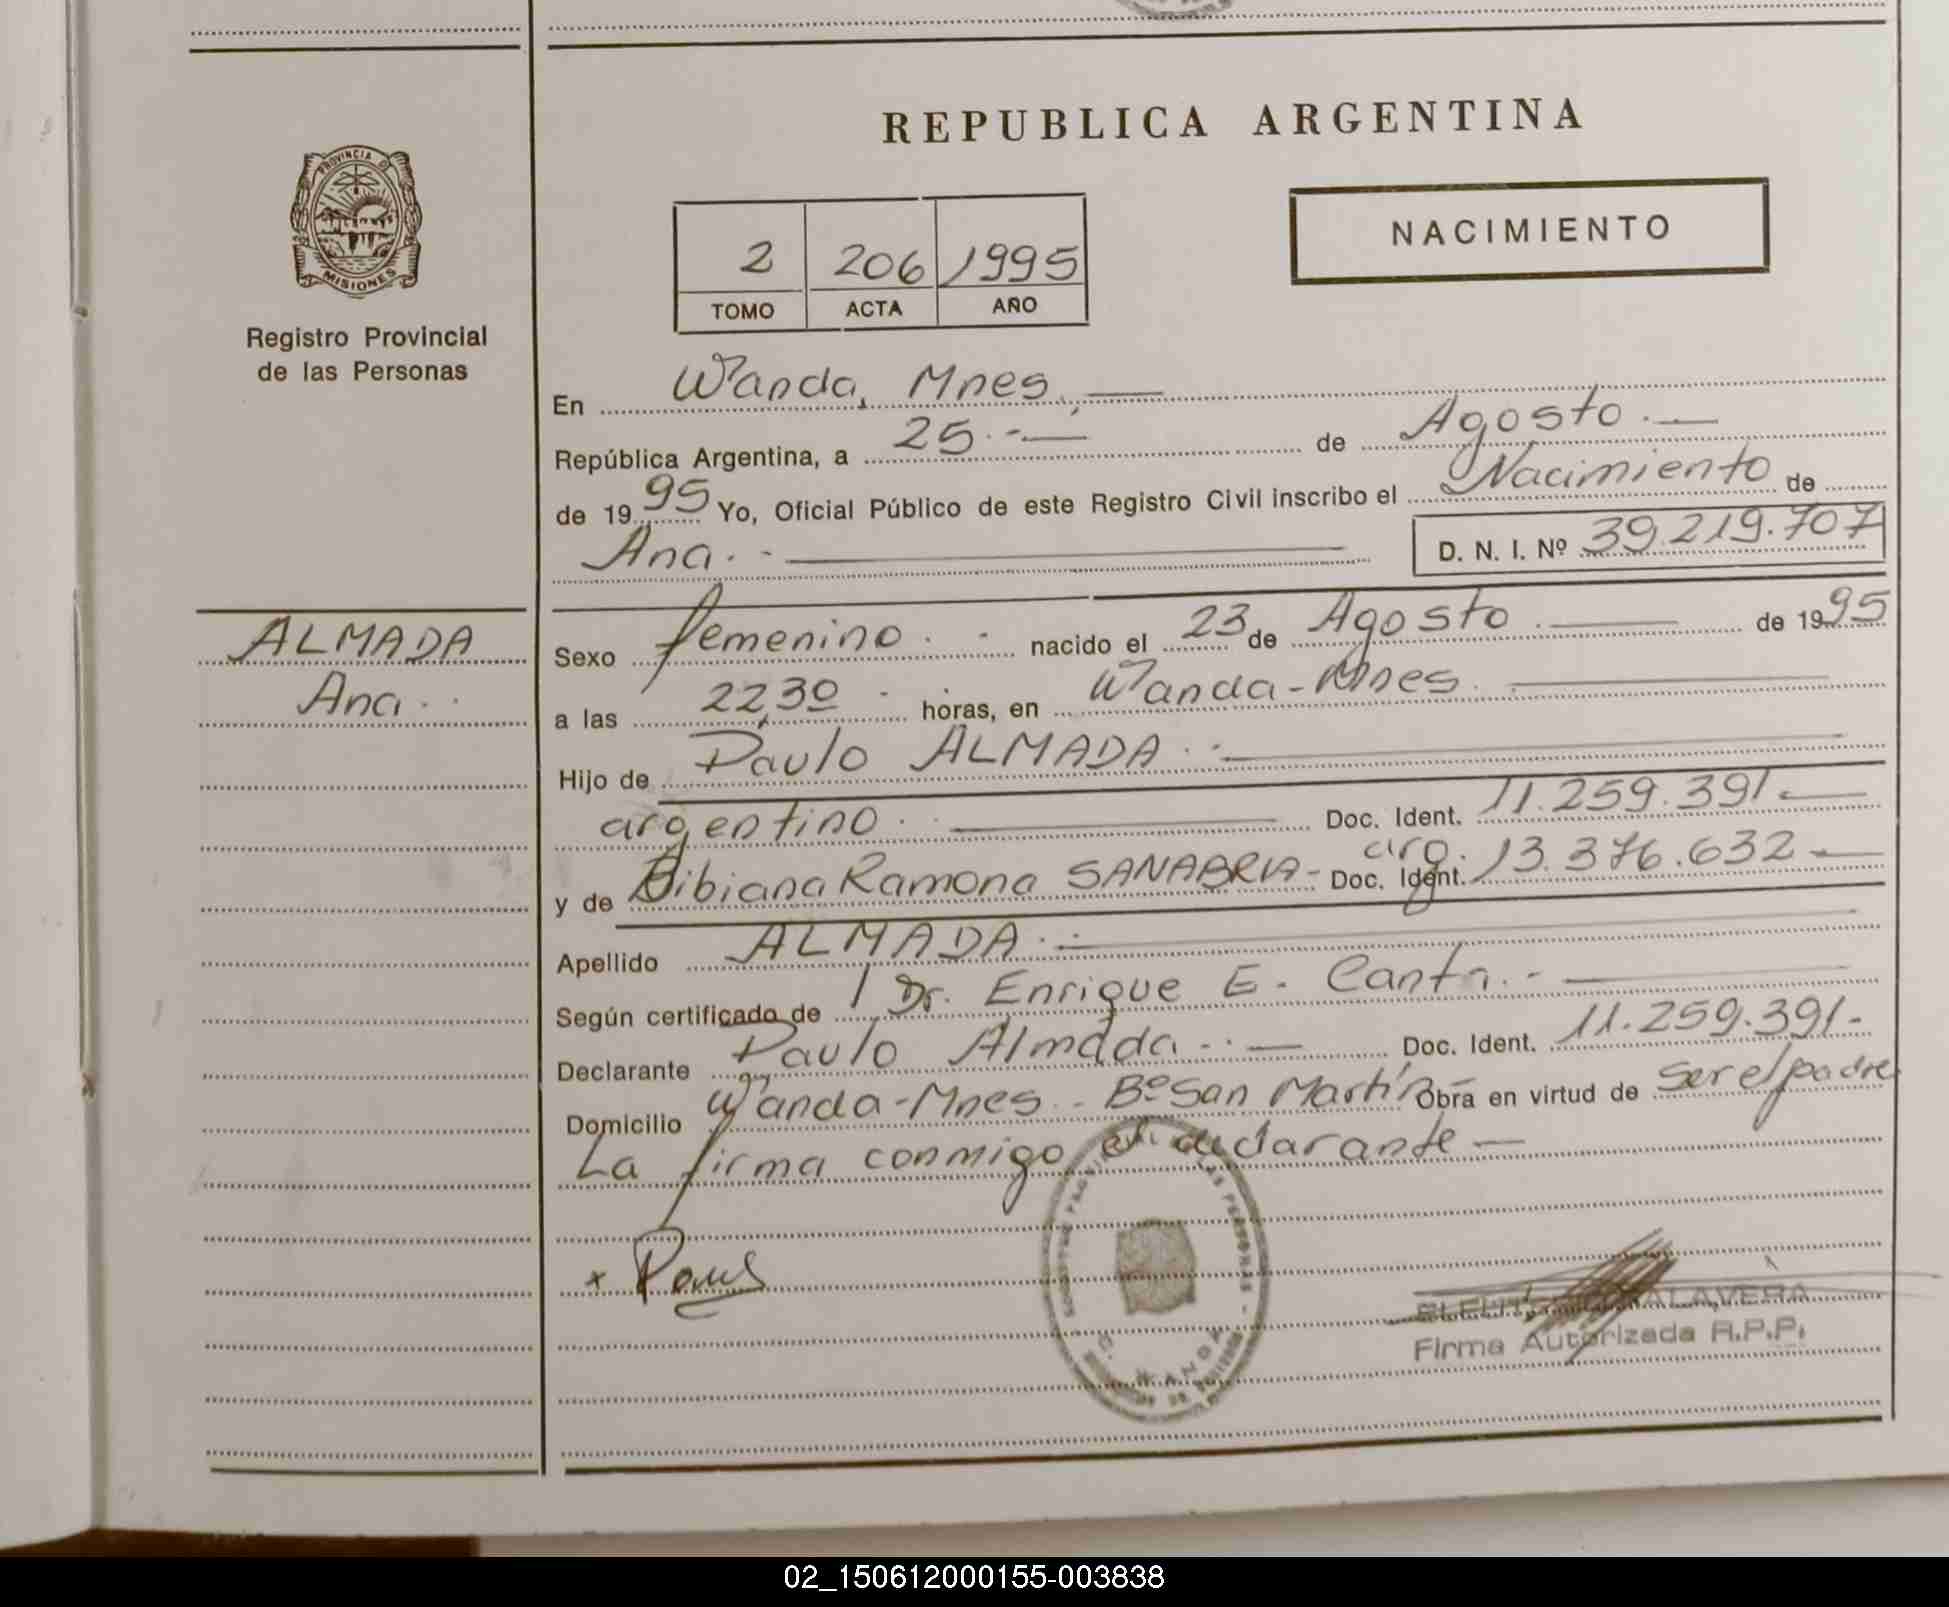 REPUBLICA ARGENTINA
PROVINCIA DE
MISIONES
Registro Provincial
de las Personas
NACIMIENTO
2 206 1995
TOMO ACTA AÑO
En Wanda, Mnes.
República Argentina, a 25 de Agosto
de 1995 Yo, Oficial Público de este Registro Civil inscribo el Nacimiento de
Ana. D. N. I. Nº 39.219.707
ALMADA
Ana
Sexo femenino nacido el 23 de Agosto de 1995
a las 22,30 horas, en Wanda-Mnes.
Hijo de Paulo ALMADA
argentino Doc. Ident. 11.259.391
y de Bibiana Ramona SANABRIA arg. Doc. Ident. 13.376.632
Apellido ALMADA
Según certificado de Dr. Enrique E.
Declarante Paulo Almada Doc. Ident. 11.259.391
Domicilio Wanda-Mnes. Bº San Martín Obra en virtud de ser el padre
La firma conmigo el declarante
x
ALAVERA
Firma Autorizada R.P.P.
WANDA
02_150612000155-003838